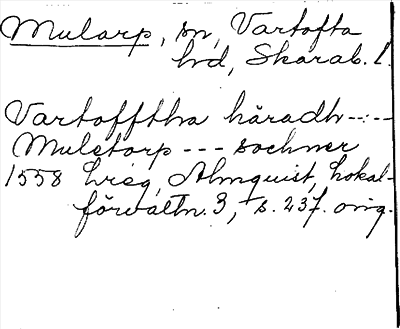 Mularp, sn, Vartofta
hd, Skarab. l.
Vartofftha häradh --:--
Mulstorp --- sochner
1558 Lreg, Almquist, Lokal-
förvaltn. 3, s. 237. orig.